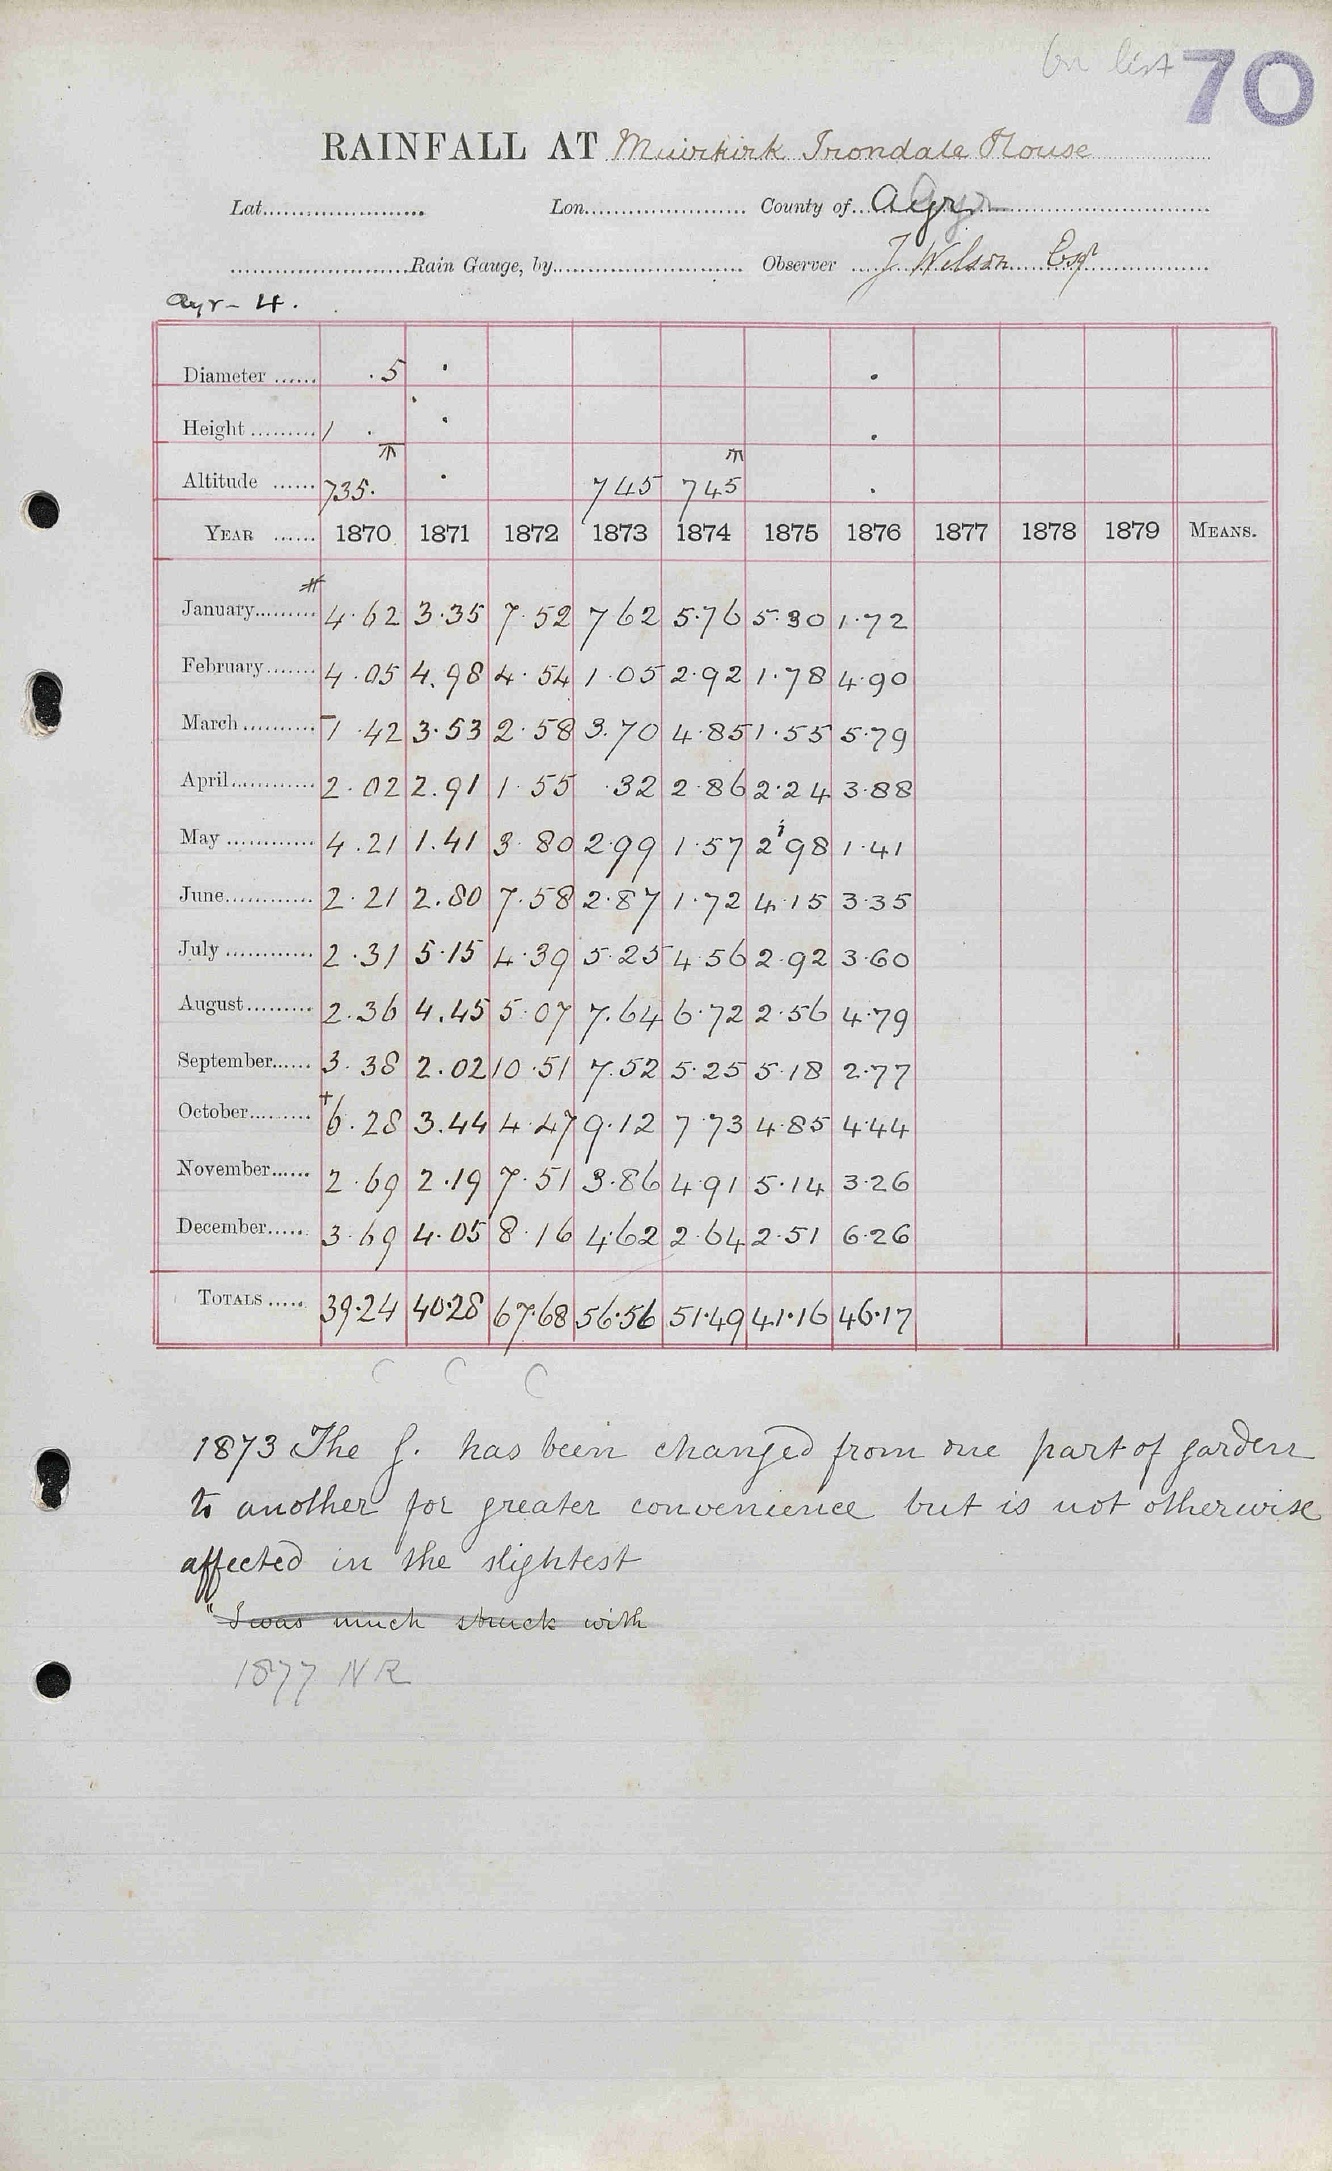 on list 70
RAINFALL AT Muirkirk Irondale House
Lat. Lon. County of Ayr
Rain Gauge, by Observer J Wilson Esqr
Ayr - 4.
Diameter ...... .5 . .
Height ......... 1 . . .
Altitude ...... 735. . 745 745 .
YEAR ...... 1870 1871 1872 1873 1874 1875 1876 1877 1878 1879 MEANS.
January......... 4.62 3.35 7.52 7 62 5.76 5.30 1.72
February....... 4.05 4.98 4.54 1.05 2.92 1.78 4.90
March.......... 1.42 3.53 2.58 3.70 4.85 1.55 5.79
April............ 2.02 2.91 1.55 .32 2.86 2.24 3.88
May ............. 4.21 1.41 3.80 2.99 1.57 2.98 1.41
June............. 2.21 2.80 7.58 2.87 1.72 4.15 3.35
July ............. 2.31 5.15 4.39 5.25 4.56 2.92 3.60
August.......... 2.36 4.45 5.07 7.64 6.72 2.56 4.79
September...... 3.38 2.02 10.51 7.52 5.25 5.18 2.77
October......... +6.28 3.44 4.47 9.12 7.73 4.85 4.44
November...... 2.69 2.19 7.51 3.86 4.91 5.14 3.26
December...... 3.69 4.05 8.16 4.62 2.64 2.51 6.26
TOTALS ...... 39.24 40.28 67.68 56.56 51.49 41.16 46.17
C C C
1873 The G. has been changed from one part of garden
to another for greater convenience but is not otherwise
affected in the slightest
"I was much struck with
1877 NR